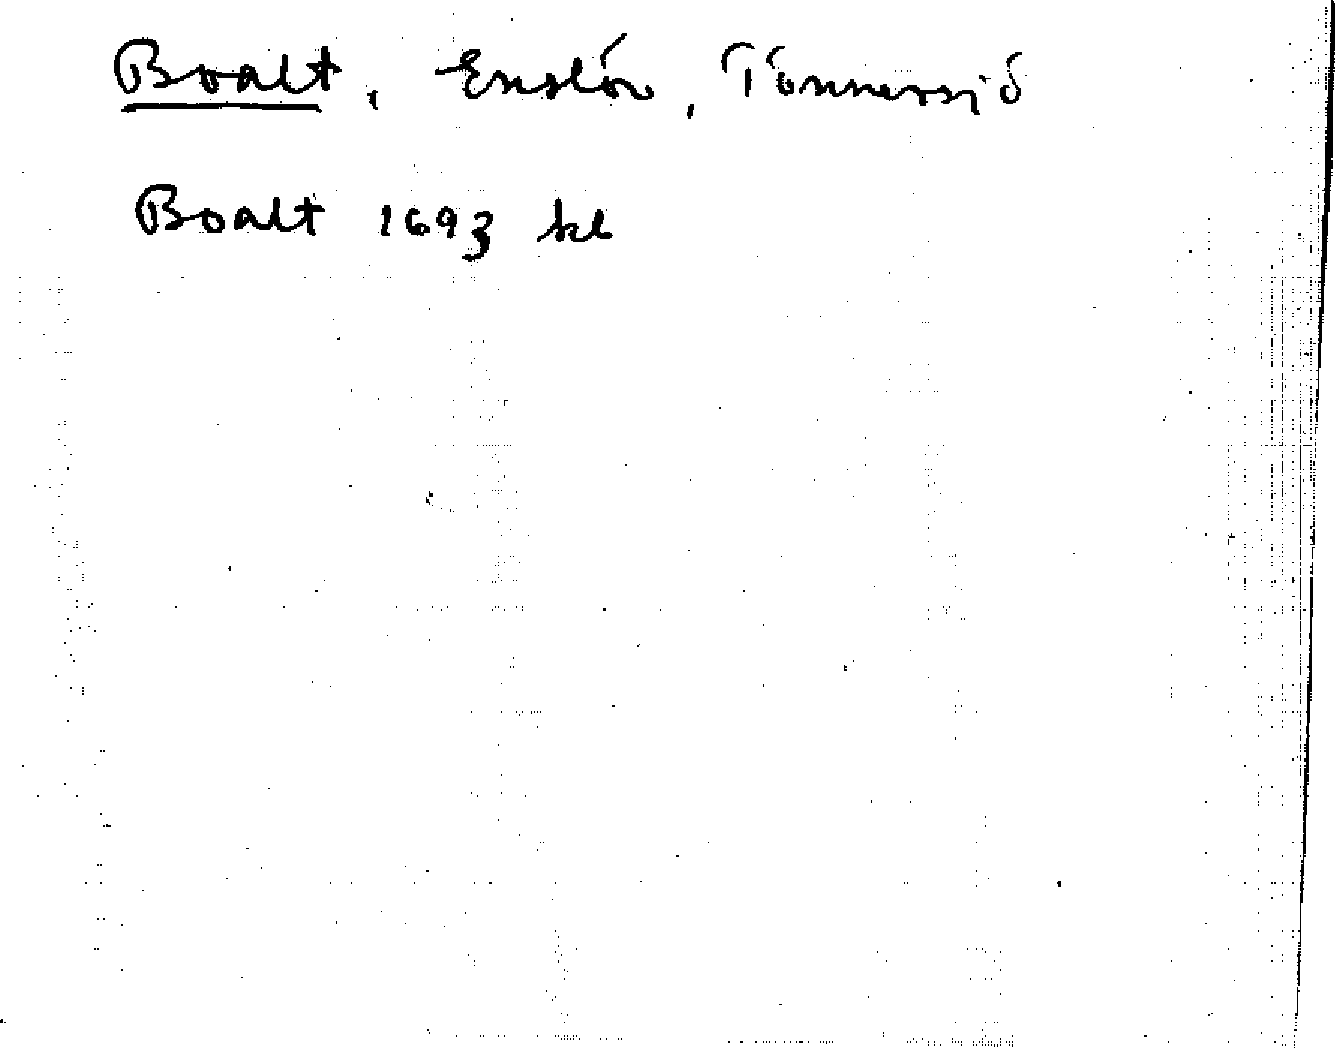 Boalt, Enslöv, Tönnersjö
Boalt 1693 kb